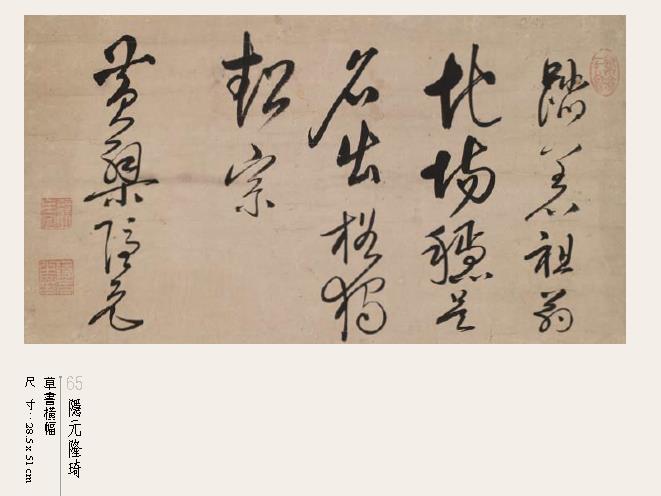 踏着祖翁
地場穩是
名出格獨
超宗
黃檗隱元
65 隱元隆琦
草書橫幅
尺寸:28.5x51cm